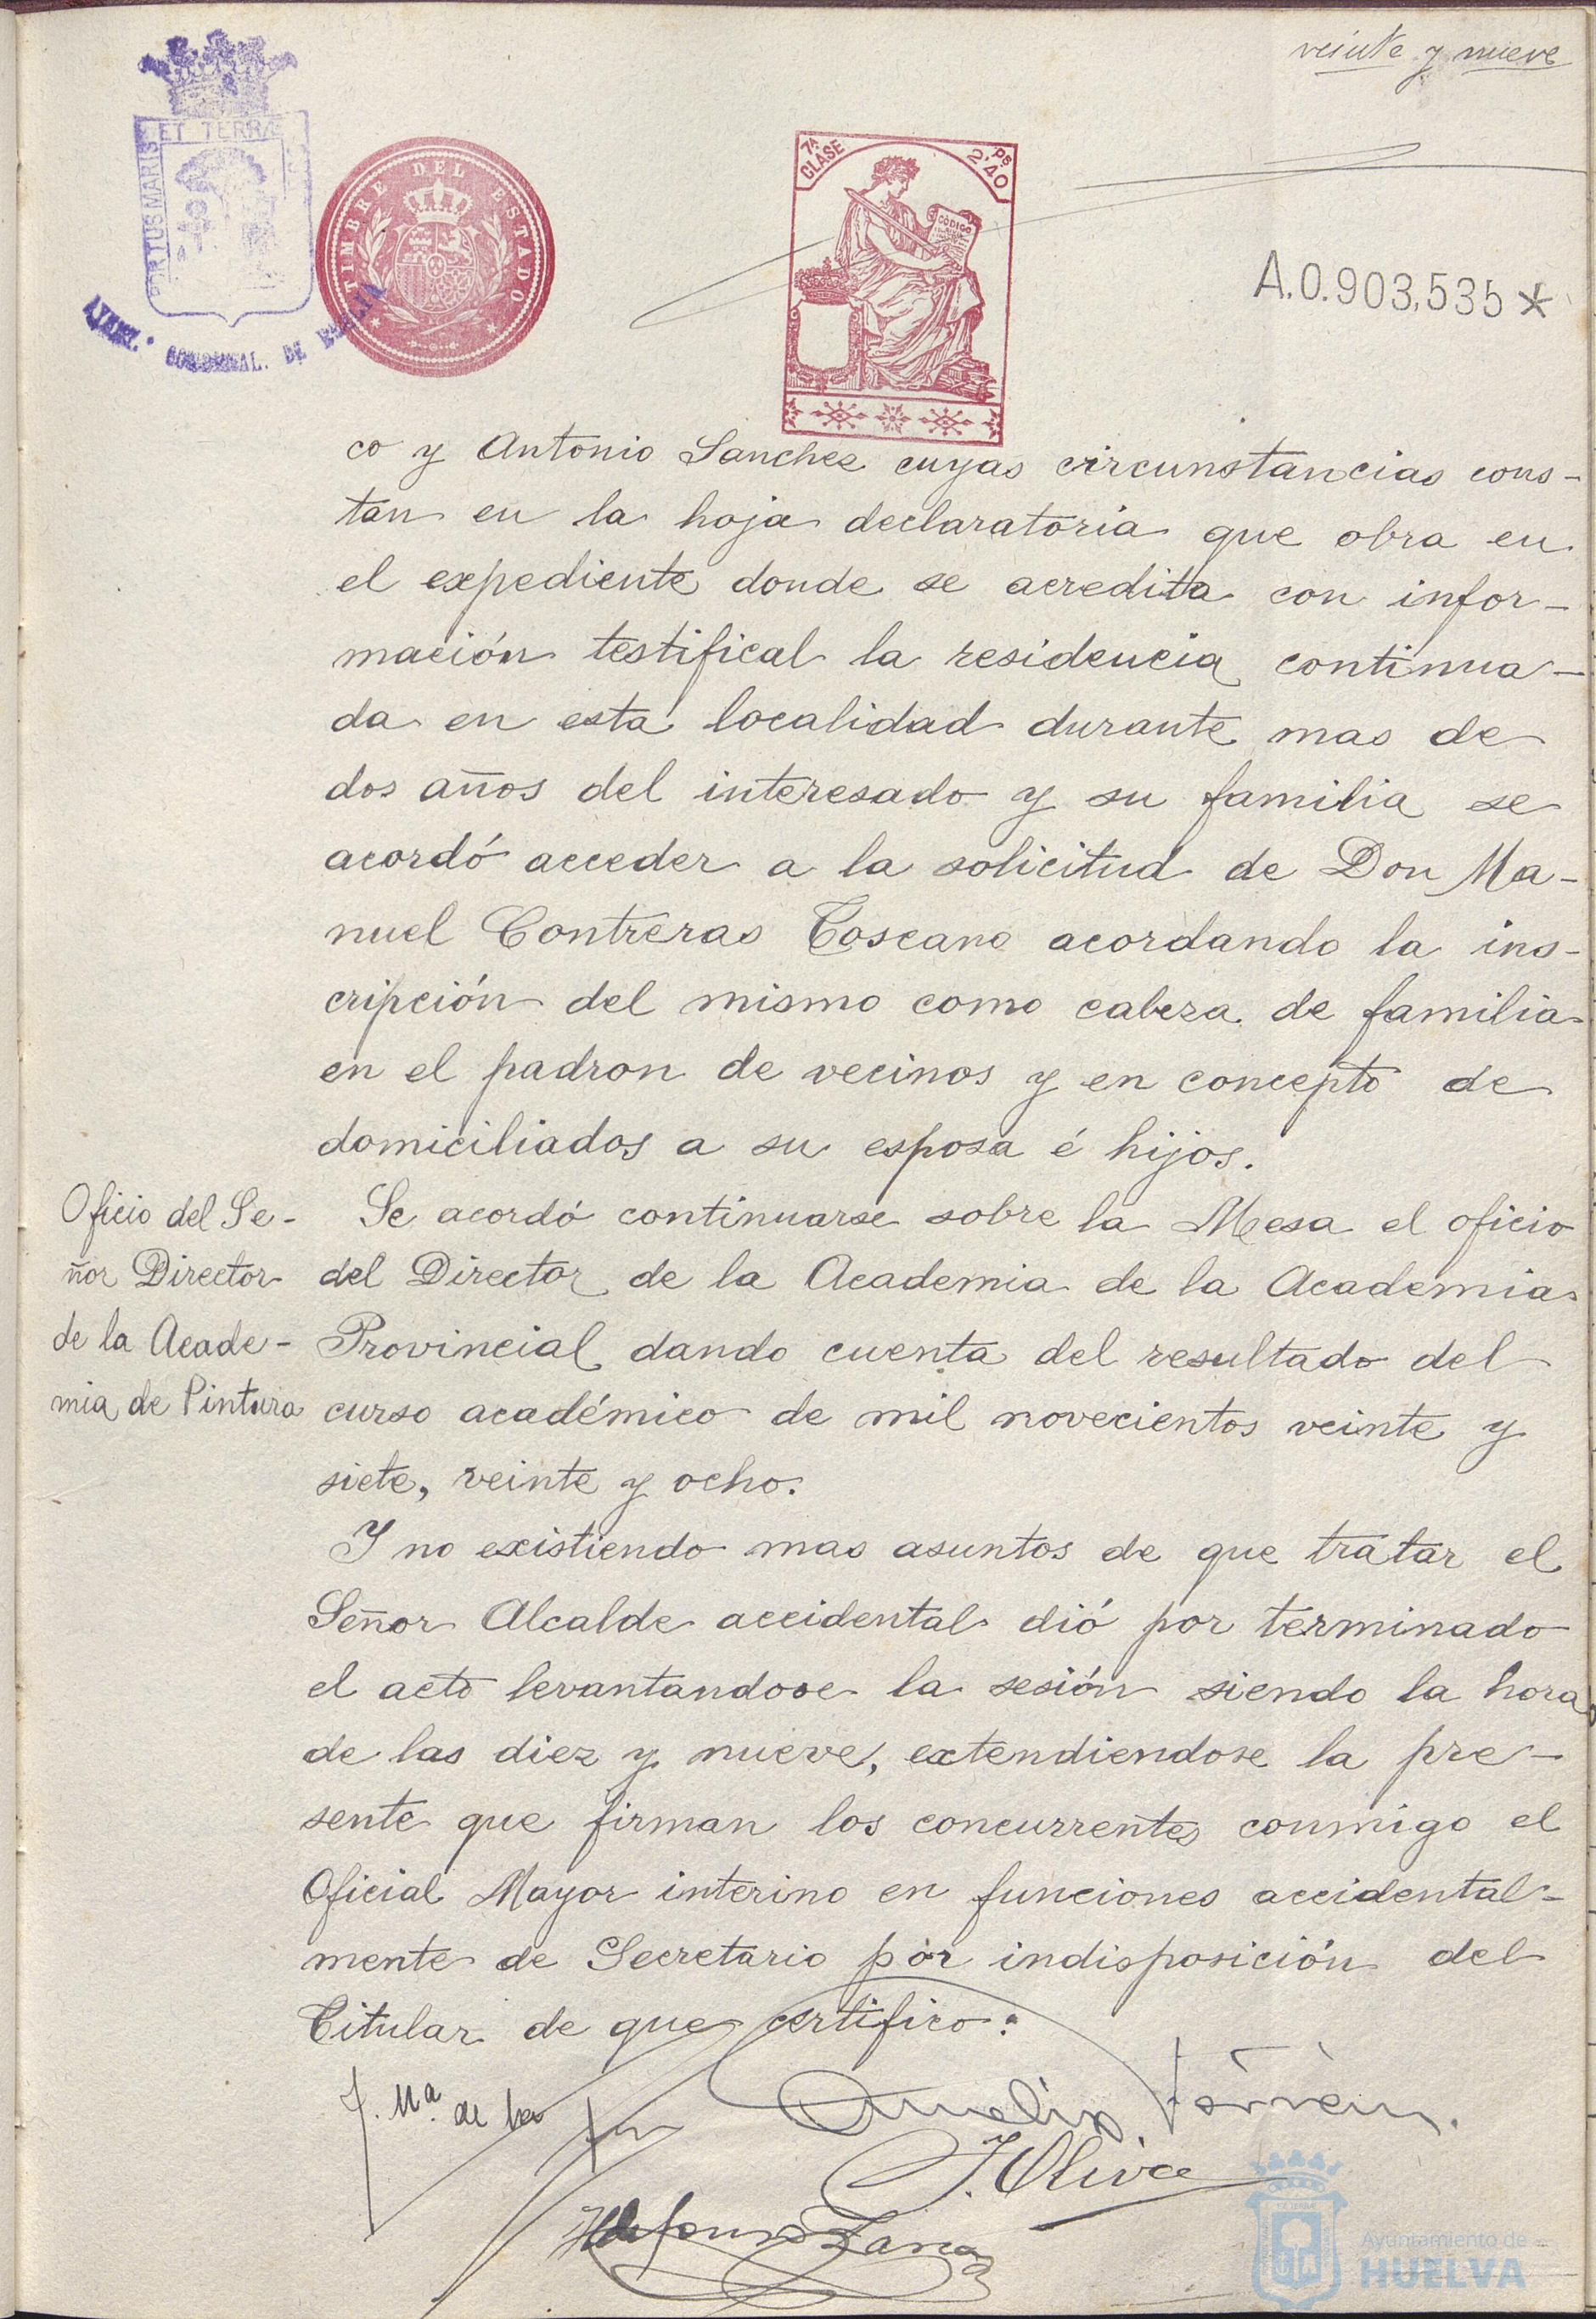 veinte y nueve
ET TERRÆ
PORTUS MARIS
TIMBRE DEL ESTADO
7ª CLASE
Ps 2'40
CÓDIGO
A.0.903,535*
AYUNT.º CONSTITUCIONAL. DE HUELVA
co y Antonio Sanchez cuyas circunstancias cons-
tan en la hoja declaratoria que obra en
el expediente donde se acredita con infor-
mación testifical la residencia continua-
da en esta localidad durante mas de
dos años del interesado y su familia se
acordó acceder a la solicitud de Don Ma-
nuel Contreras Toscano acordando la ins-
cripción del mismo como cabeza de familia
en el padron de vecinos y en concepto de
domiciliados a su esposa é hijos.
Oficio del Se-
ñor Director
de la Acade-
mia de Pintura
Se acordó continuarse sobre la Mesa el oficio
del Director de la Academia de la Academia
Provincial dando cuenta del resultado del
curso académico de mil novecientos veinte y
siete, veinte y ocho.
Y no existiendo mas asuntos de que tratar el
Señor Alcalde accidental dió por terminado
el acto levantandose la sesión siendo la hora
de las diez y nueve, extendiendose la pre-
sente que firman los concurrentes conmigo el
Oficial Mayor interino en funciones accidental-
mente de Secretario por indisposición del
Titular de que certifico:
J. Mª de la
J. Oliva
Ildefonso
Ayuntamiento de
HUELVA